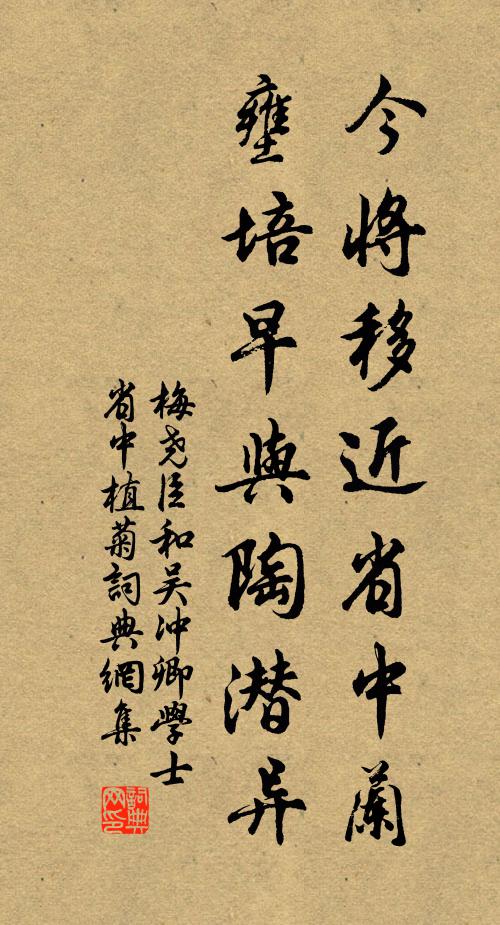 今將移近省中蘭
壅培早與陶潛异
梅堯臣和吴冲卿學士
省中植菊詞典網集
詞典网印